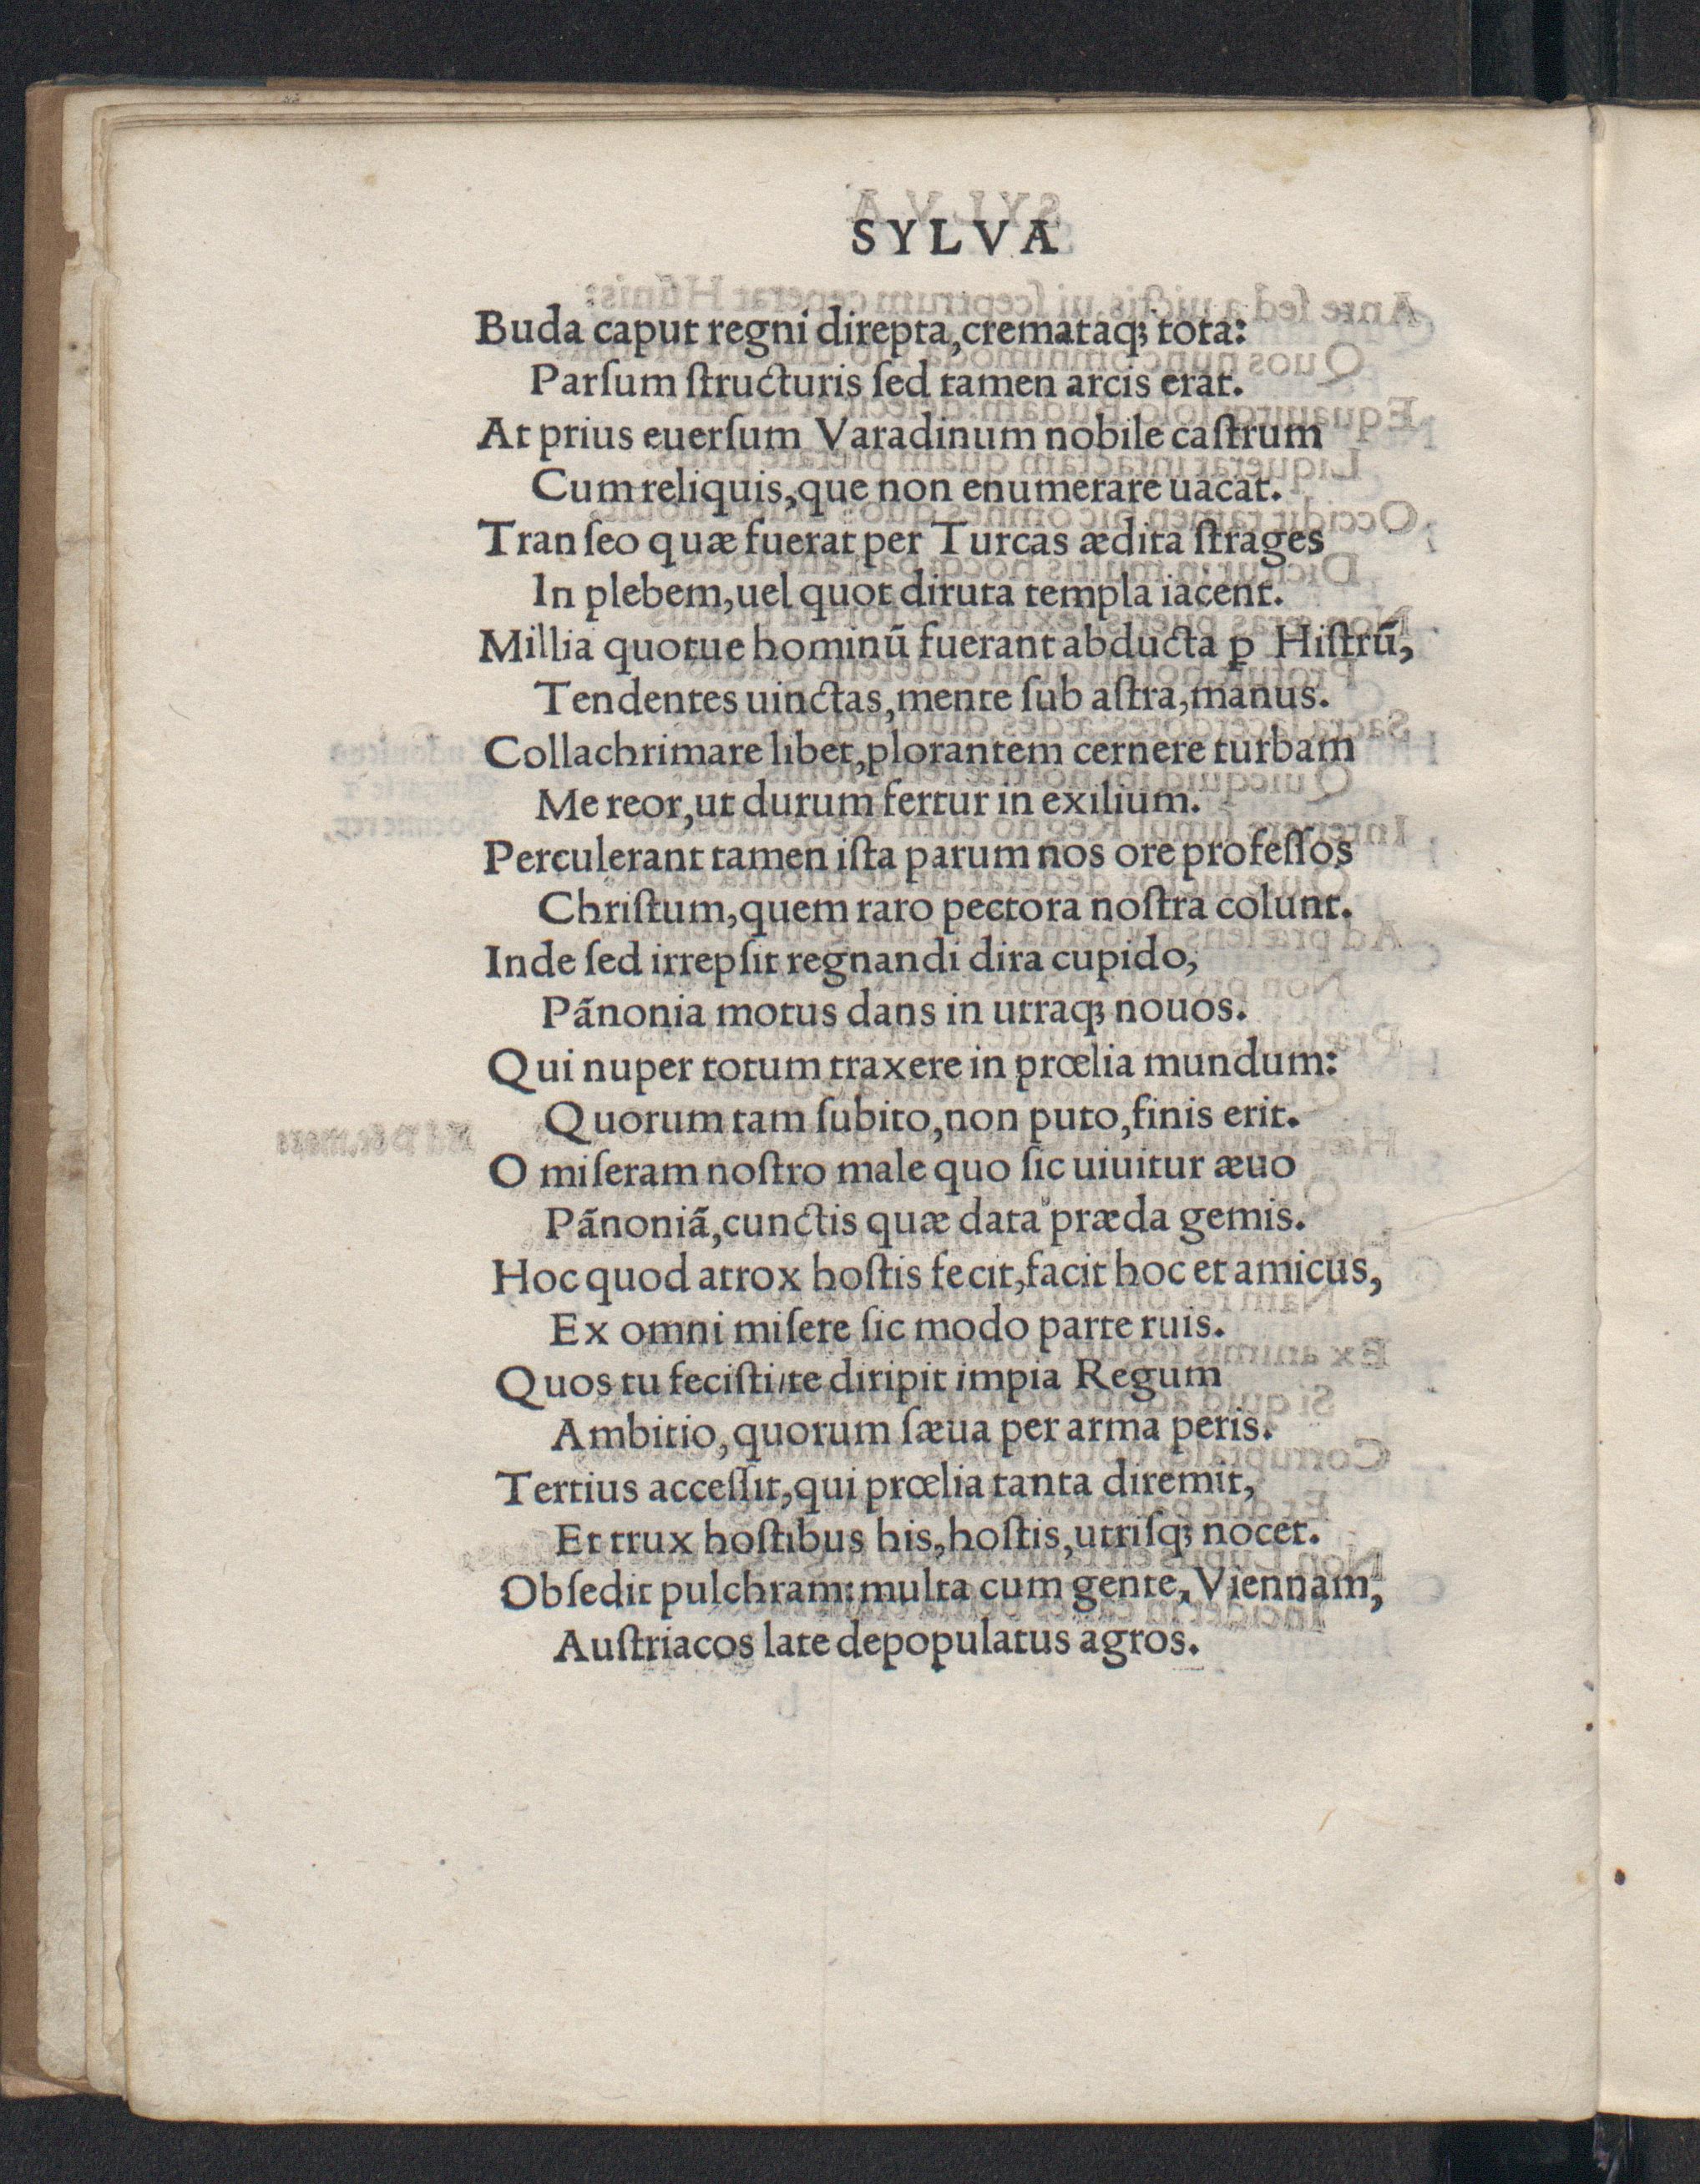 SYLVA
Buda caput regni direpta, crematаqꝫ tota:
Parſum ſtructuris ſed tamen arcis erat.
At prius euerſum Varadinum nobile caſtrum
Cum reliquis, que non enumerare uacat.
Tranſeo quæ fuerat per Turcas ædita ſtrages
In plebem, uel quot diruta templa iacent.
Millia quotue hominū fuerant abducta ꝑ Hiſtrū,
Tendentes uinctas, mente ſub aſtra, manus.
Collachrimare libet, plorantem cernere turbam
Me reor, ut durum fertur in exilium.
Perculerant tamen iſta parum nos ore profeſſos
Chriſtum, quem raro pectora noſtra colunt.
Inde ſed irrepſit regnandi dira cupido,
Pãnonia motus dans in utraqꝫ nouos.
Qui nuper totum traxere in prœlia mundum:
Quorum tam ſubito, non puto, finis erit.
O miſeram noſtro male quo ſic uiuitur æuo
Pãnoniã, cunctis quæ data præda gemis.
Hoc quod atrox hoſtis fecit, facit hoc et amicus,
Ex omni miſere ſic modo parte ruis.
Quos tu feciſti/te diripit impia Regum
Ambitio, quorum ſæua per arma peris.
Tertius acceſſit, qui prœlia tanta diremit,
Et trux hoſtibus his, hoſtis, utriſqꝫ nocet.
Obſedit pulchram: multa cum gente, Viennam,
Auſtriacos late depopulatus agros.